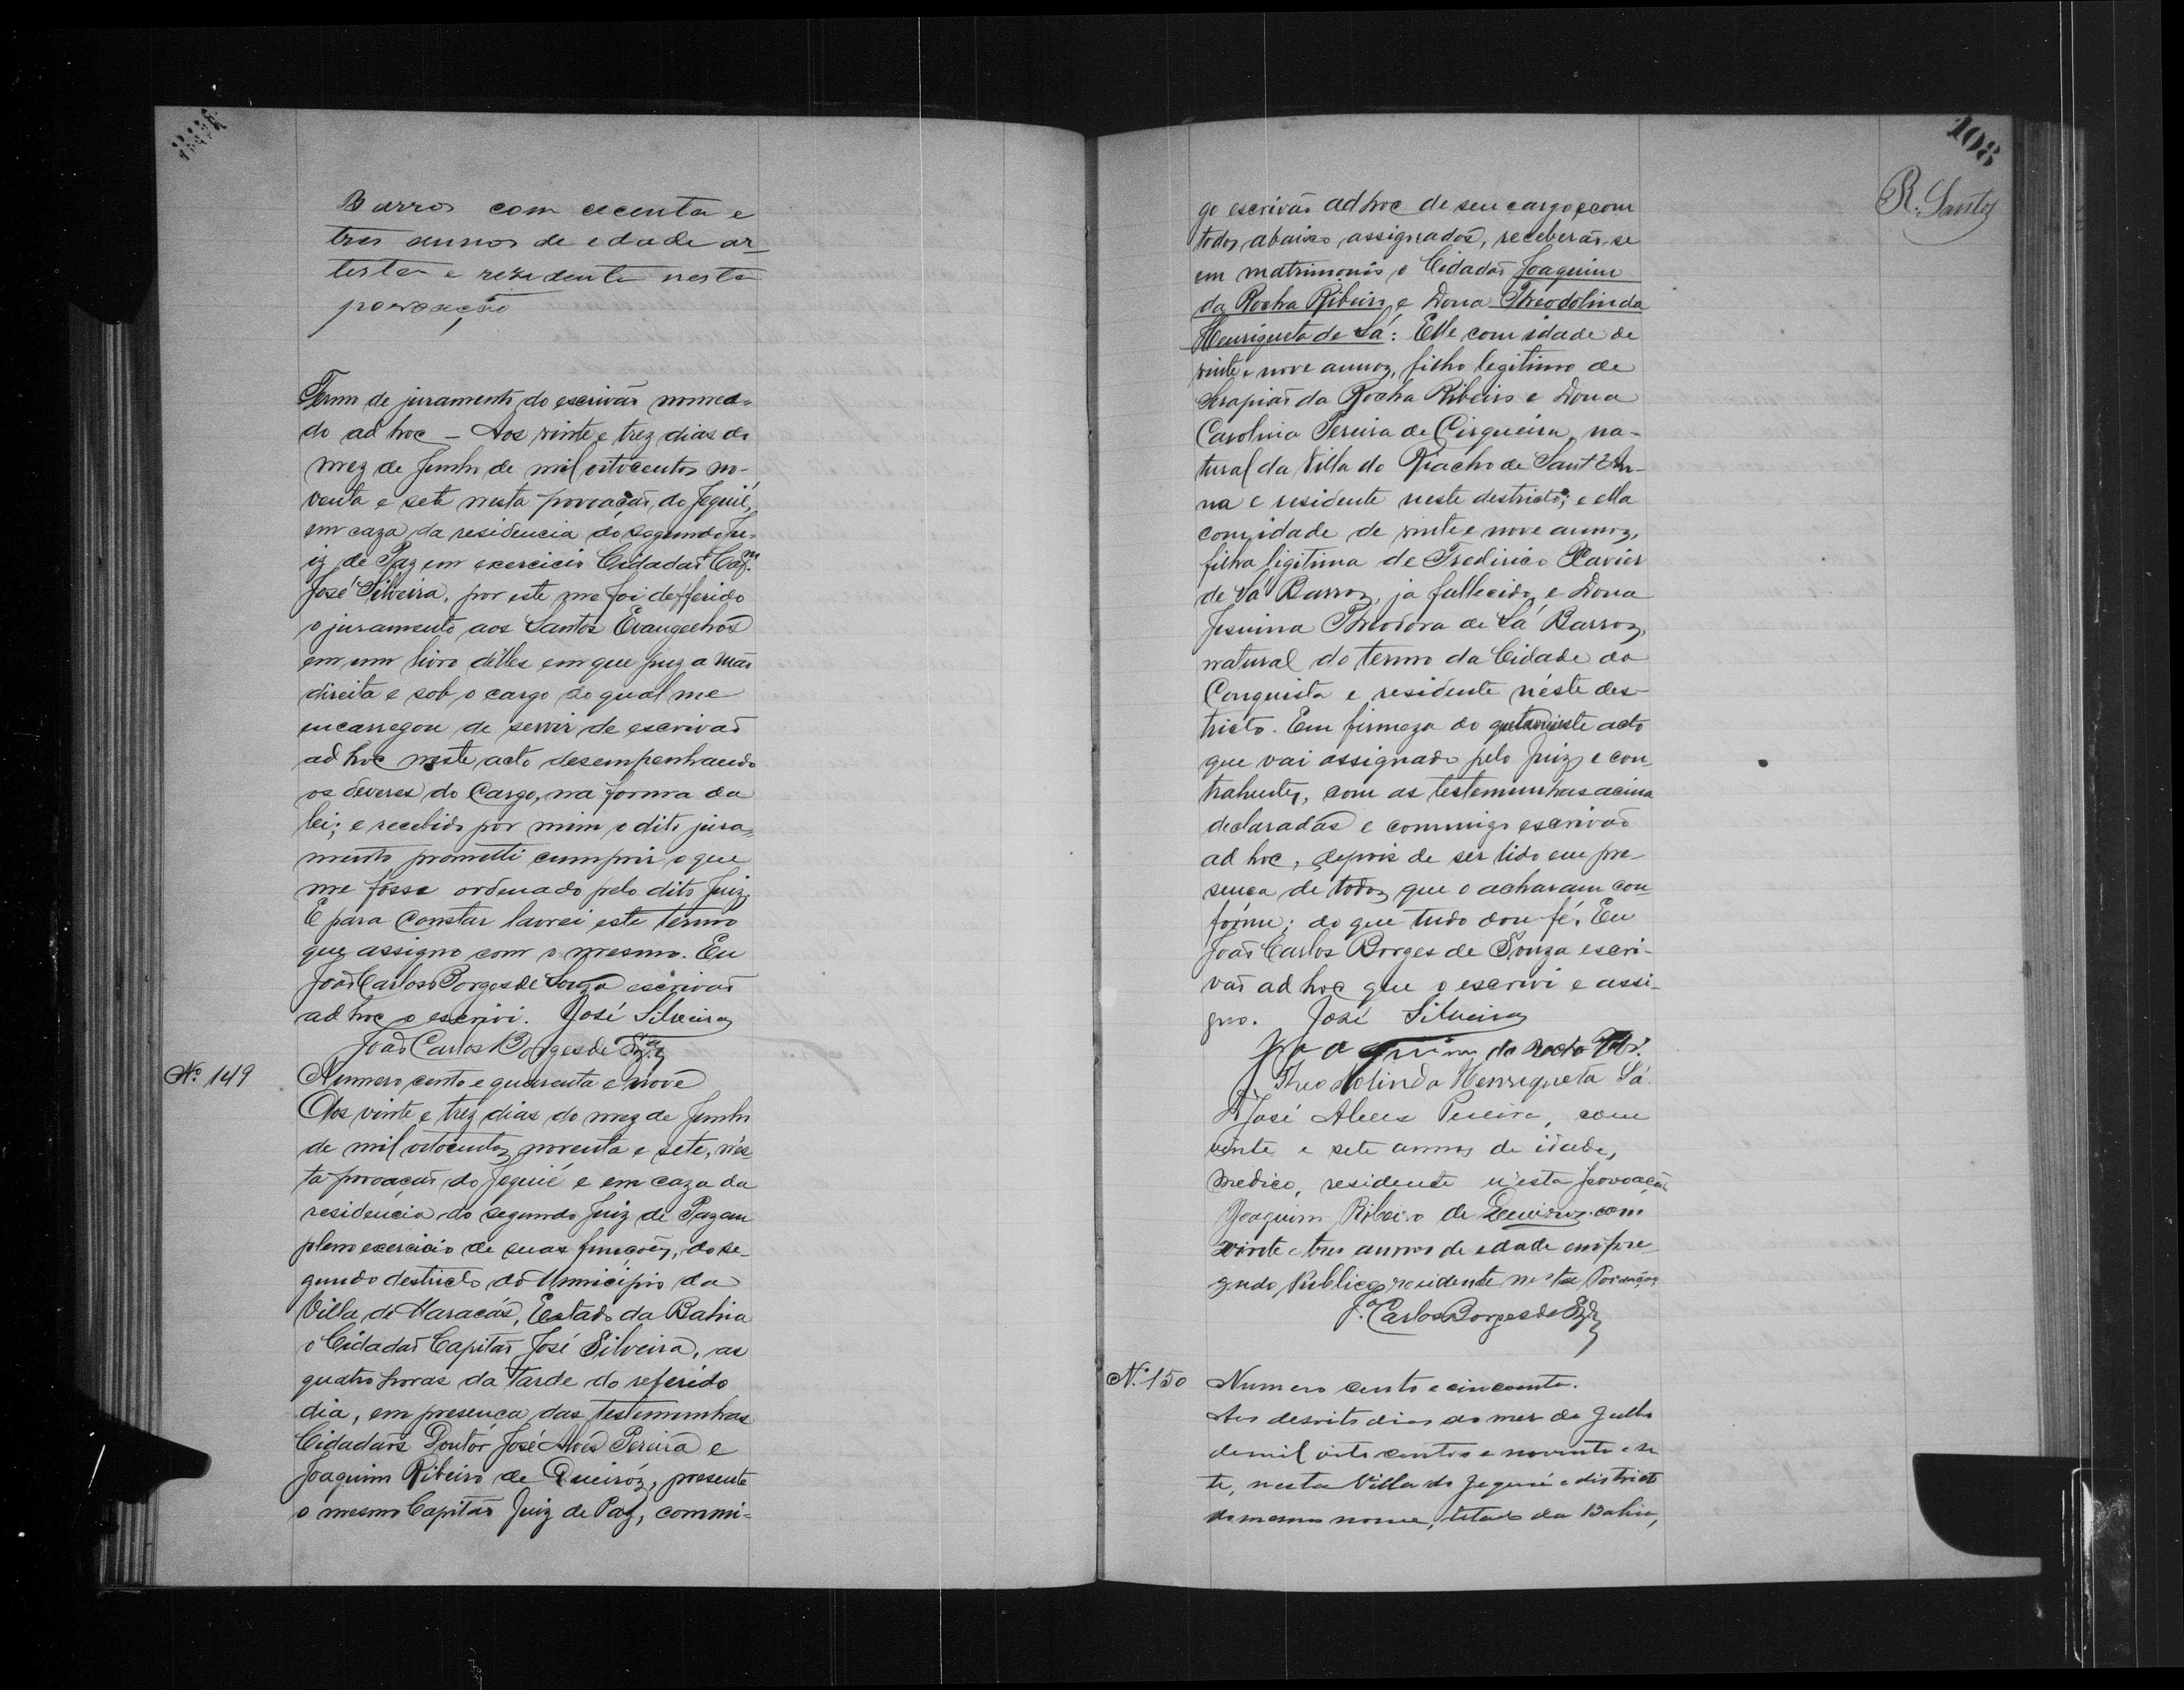 Barros com cecenta e
tres annos de edade ar-
tista e rezidente nesta
povoação
Termo de juramento do escrivão nomea-
do ad hoc - Aos vinte e trez dias do
mez de Junho de mil oitocentos no-
venta e sete nesta povoação do Jequié,
em caza da residencia do segundo Ju-
iz de Paz em exercicio Cidadão Capm.
José Silveira, por este me foi defferido
o juramento aos Santos Evangelhos
em um livro delles em que puz a mão
direita e sob o cargo do qual me
encarregou de servir de escrivão
ad hoc neste acto desempenhando
os deveres do Cargo, na forma da
lei; e recebido por mim o dito jura-
mento prometti cumprir o que
me fosse ordenado pelo dito Juiz.
E para constar lavrei este termo
que assigno com o mesmo. Eu
João Carlos Borges de Souza escrivão
ad hoc o escrivi. José Silveira
João Carlos Borges de Sza.
No. 149
Numero cento e quarenta e nove
Aos vinte e trez dias do mez de Junho
de mil oitocentos noventa e sete, n'es-
ta povoação do Jequié e em caza da
residencia do segundo Juiz de Paz em
pleno exercicio de suas funcções, do se-
gundo destricto do Municipio da
Villa de Maracás, Estado da Bahia
o Cidadão Capitão José Silveira, as
quatro horas da tarde do referido
dia, em presença das testemunhas
Cidadãos Doutor José Alves Pereira e
Joaquim Ribeiro de Queiróz, presente
o mesmo Capitão Juiz de Paz, commi-
108
R. Santos
go escrivão ad hoc de seu cargo e com
todos abaixo assignados, receberão-se
em matrimonio o Cidadão Joaquim
da Rocha Ribeiro e Dona Theodolinda
Henriqueta de Sá: Elle com idade de
vinte e nove annos, filho legitimo de
Serapião da Rocha Ribeiro e Dona
Carolina Pereira de Cirqueira, na-
tural da Villa do Riacho de Sant'An-
na e residente neste destricto; e ella
com idade de vinte e nove annos,
filha ligitima de Fredirico Xavier
de Sá Barros, já fallecido, e Dona
Jesuina Theodora de Sá Barros,
natural do termo da Cidade da
Conquista e residente néste des-
tricto. Em firmeza do que lavrei este acto
que vai assignado pelo Juiz e con-
trahentes, com as testemunhas acima
declaradas e commigo escrivão
ad hoc, depois de ser lido em pre-
sença de todos que o acharam con-
forme; do que tudo dou fé. Eu
João Carlos Borges de Souza escri-
vão ad hoc que o escrivi e assi-
gno. José Silveira
Joaquim da Rocha Ribr.
Theodolinda Henriqueta Sá
José Alves Pereira, com
vinte e sete annos de idade,
medico, residente n'esta povoação
Joaquim Ribeiro de Queiroz com
vinte e tres annos de edade empre
gado Publico residente nesta Povoação
Jo. Carlos Borges de Sza
No. 150
Numero cento e cincoenta.
Aos desoito dias do mes de Julho
de mil oito centos e noventa e se
te, nesta Villa do Jequié e districto
do mesmo nome, Estado da Bahia,